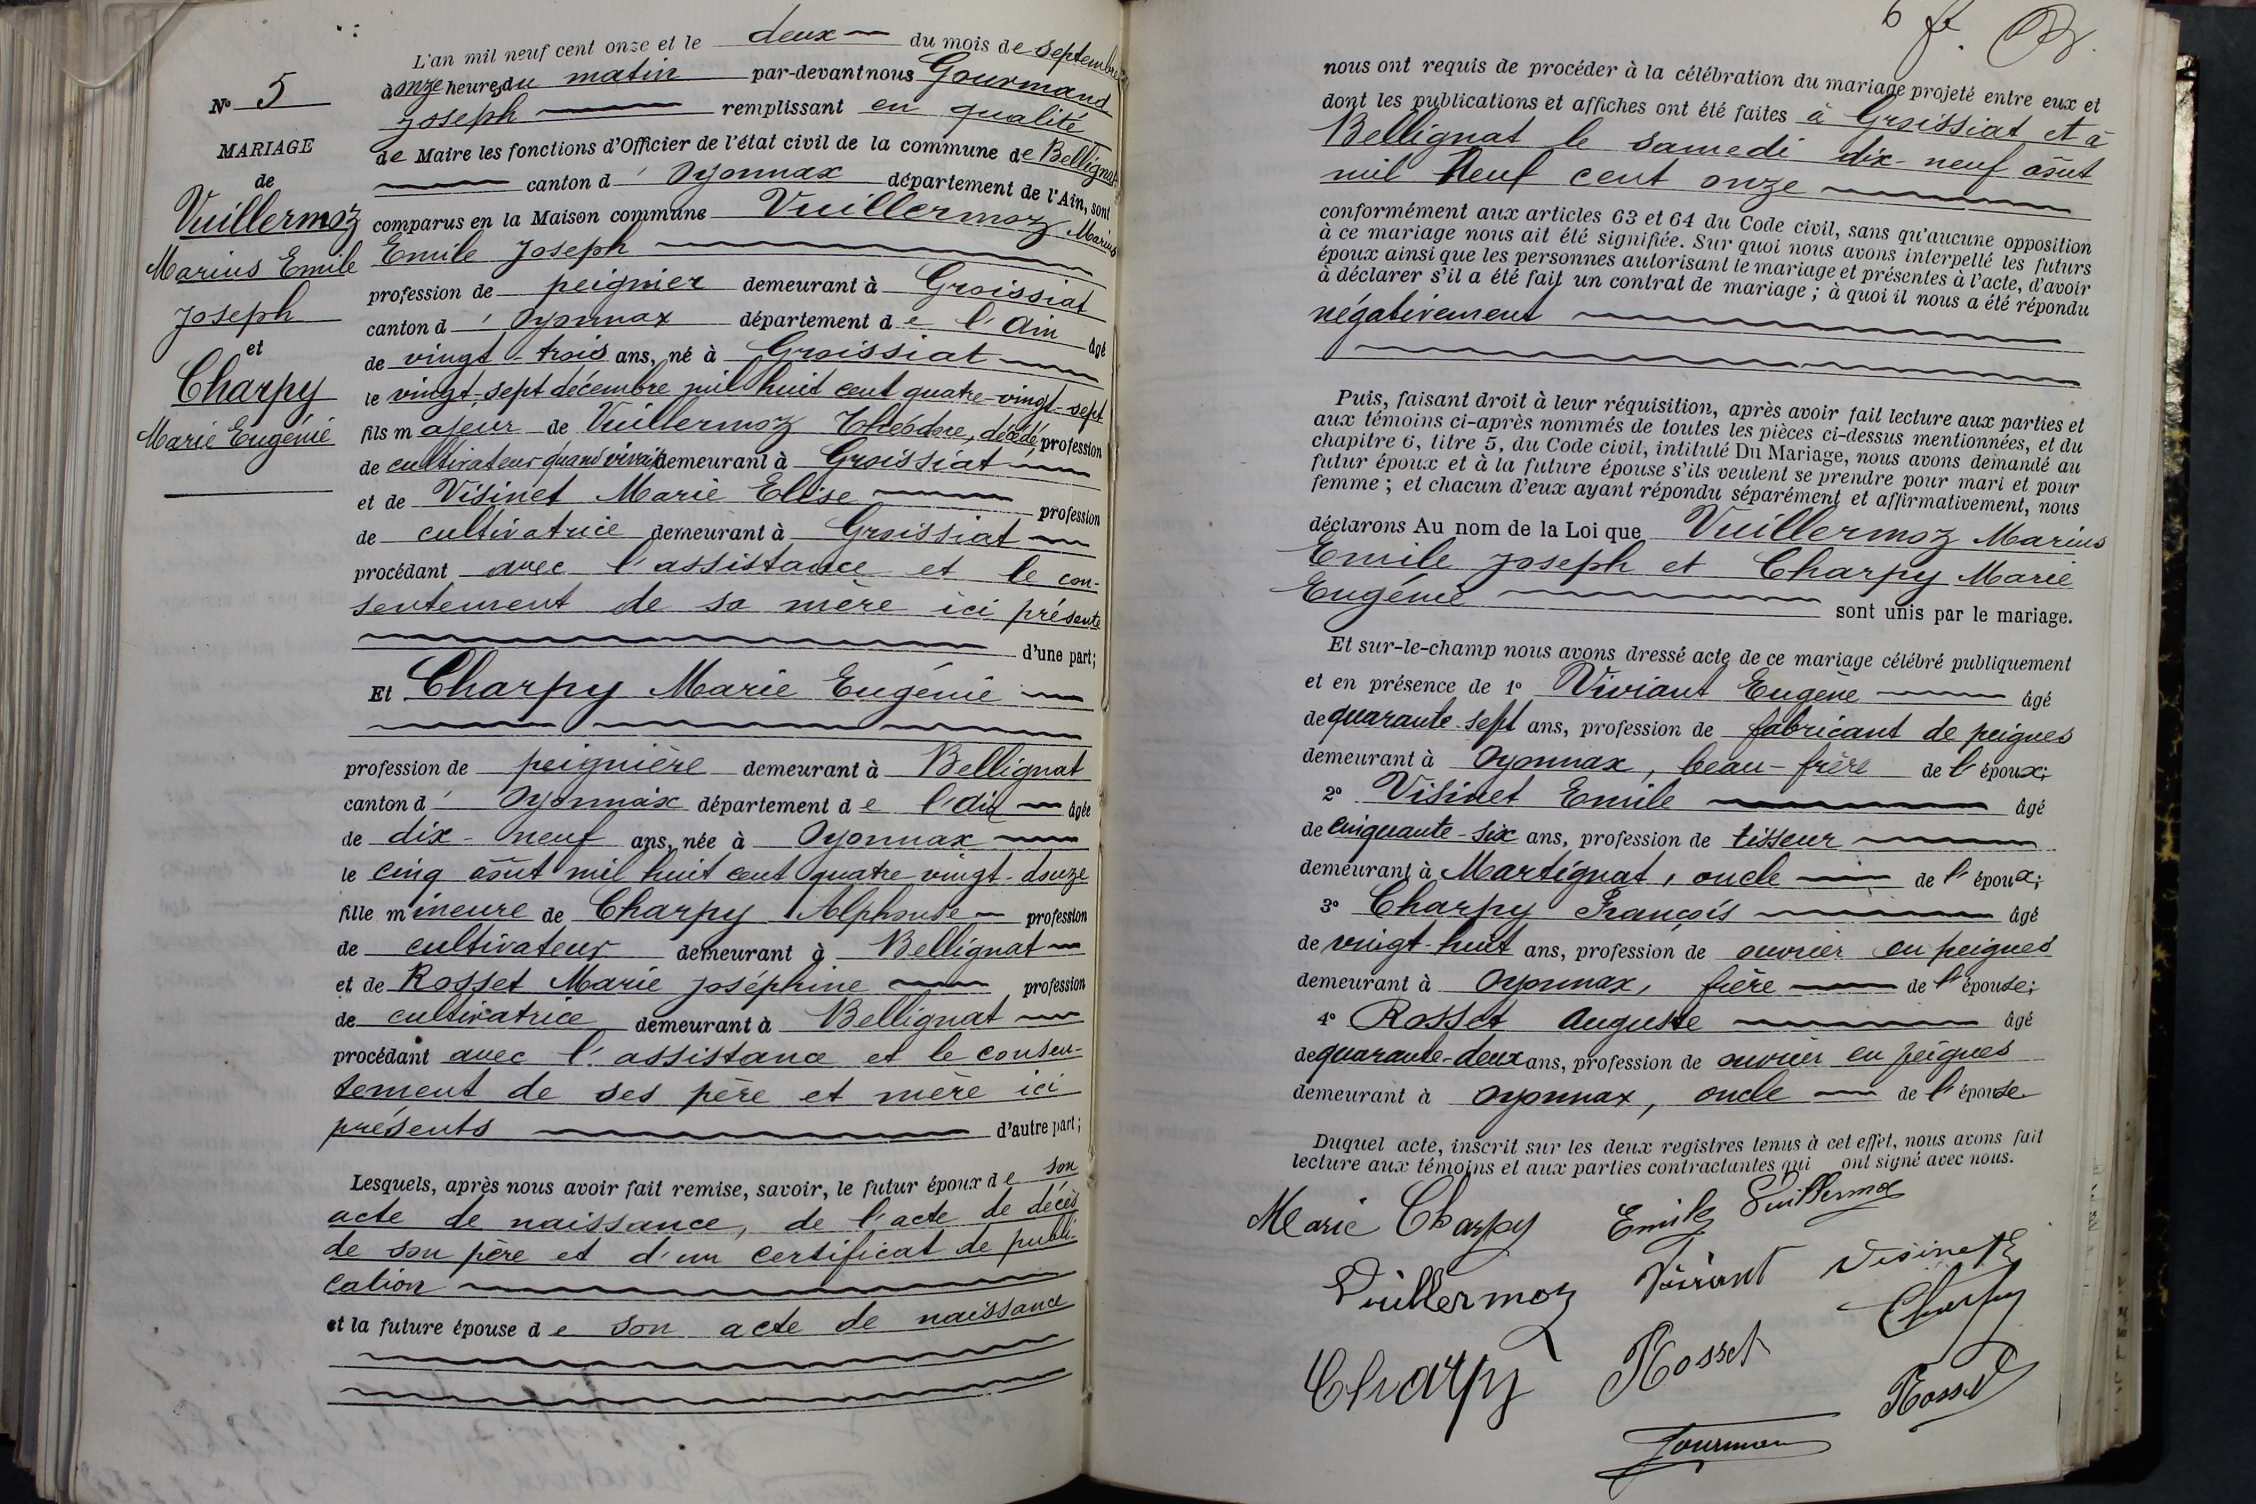 L'an mil neuf cent onze et le deux du mois de septembre
à onze heures du matin par-devant nous Gourmand
Joseph remplissant en qualité
de Maire les fonctions d'Officier de l'état civil de la commune de Bellignat
canton d'Oyonnax département de l'Ain, sont
comparus en la Maison commune Vuillermoz Marius
Emile Joseph
profession de peignier demeurant à Groissiat
canton d'Oyonnax département de l'Ain âgé
de vingt-trois ans, né à Groissiat
le vingt-sept décembre mil huit cent quatre-vingt-sept
fils majeur de Vuillermoz Théodore, décédé, profession
de cultivateur quand vivait demeurant à Groissiat
et de Visinet Marie Elise profession
de cultivatrice demeurant à Groissiat
procédant avec l'assistance et le con-
sentement de sa mère ici présente
d'une part;
Et Charpy Marie Eugénie
profession de peignière demeurant à Bellignat
canton d'Oyonnax département de l'Ain âgée
de dix-neuf ans, née à Oyonnax
le cinq août mil huit cent quatre-vingt-douze
fille mineure de Charpy Alphonse profession
de cultivateur demeurant à Bellignat
et de Rosset Marie Joséphine profession
de cultivatrice demeurant à Bellignat
procédant avec l'assistance et le consen-
tement de ses père et mère ici
présents d'autre part;
Lesquels, après nous avoir fait remise, savoir, le futur époux de son
acte de naissance, de l'acte de décès
de son père et d'un certificat de publi-
cation
et la future épouse de son acte de naissance
N° 5
MARIAGE
de
Vuillermoz
Marius Emile
Joseph
et
Charpy
Marie Eugénie
6 f.
nous ont requis de procéder à la célébration du mariage projeté entre eux et
dont les publications et affiches ont été faites à Groissiat et à
Bellignat le samedi dix-neuf août
mil neuf cent onze
conformément aux articles 63 et 64 du Code civil, sans qu'aucune opposition
à ce mariage nous ait été signifiée. Sur quoi nous avons interpellé les futurs
époux ainsi que les personnes autorisant le mariage et présentes à l'acte, d'avoir
à déclarer s'il a été fait un contrat de mariage; à quoi il nous a été répondu
négativement
Puis, faisant droit à leur réquisition, après avoir fait lecture aux parties et
aux témoins ci-après nommés de toutes les pièces ci-dessus mentionnées, et du
chapitre 6, titre 5, du Code civil, intitulé Du Mariage, nous avons demandé au
futur époux et à la future épouse s'ils veulent se prendre pour mari et pour
femme; et chacun d'eux ayant répondu séparément et affirmativement, nous
déclarons Au nom de la Loi que Vuillermoz Marius
Emile Joseph et Charpy Marie
Eugénie sont unis par le mariage.
Et sur-le-champ nous avons dressé acte de ce mariage célébré publiquement
et en présence de 1° Viviant Eugène âgé
de quarante-sept ans, profession de fabricant de peignes
demeurant à Oyonnax, beau-frère de l'époux;
2° Visinet Emile âgé
de cinquante-six ans, profession de tisseur
demeurant à Martignat, oncle de l'époux;
3° Charpy François âgé
de vingt-huit ans, profession de ouvrier en peignes
demeurant à Oyonnax, frère de l'épouse;
4° Rosset Auguste âgé
de quarante-deux ans, profession de ouvrier en peignes
demeurant à Oyonnax, oncle de l'épouse.
Duquel acte, inscrit sur les deux registres tenus à cet effet, nous avons fait
lecture aux témoins et aux parties contractantes qui ont signé avec nous.
Marie Charpy Emile Vuillermoz
Vuillermoz Viviant Visinet E
Charpy Rosset Charpy
Rosset
Gourmand